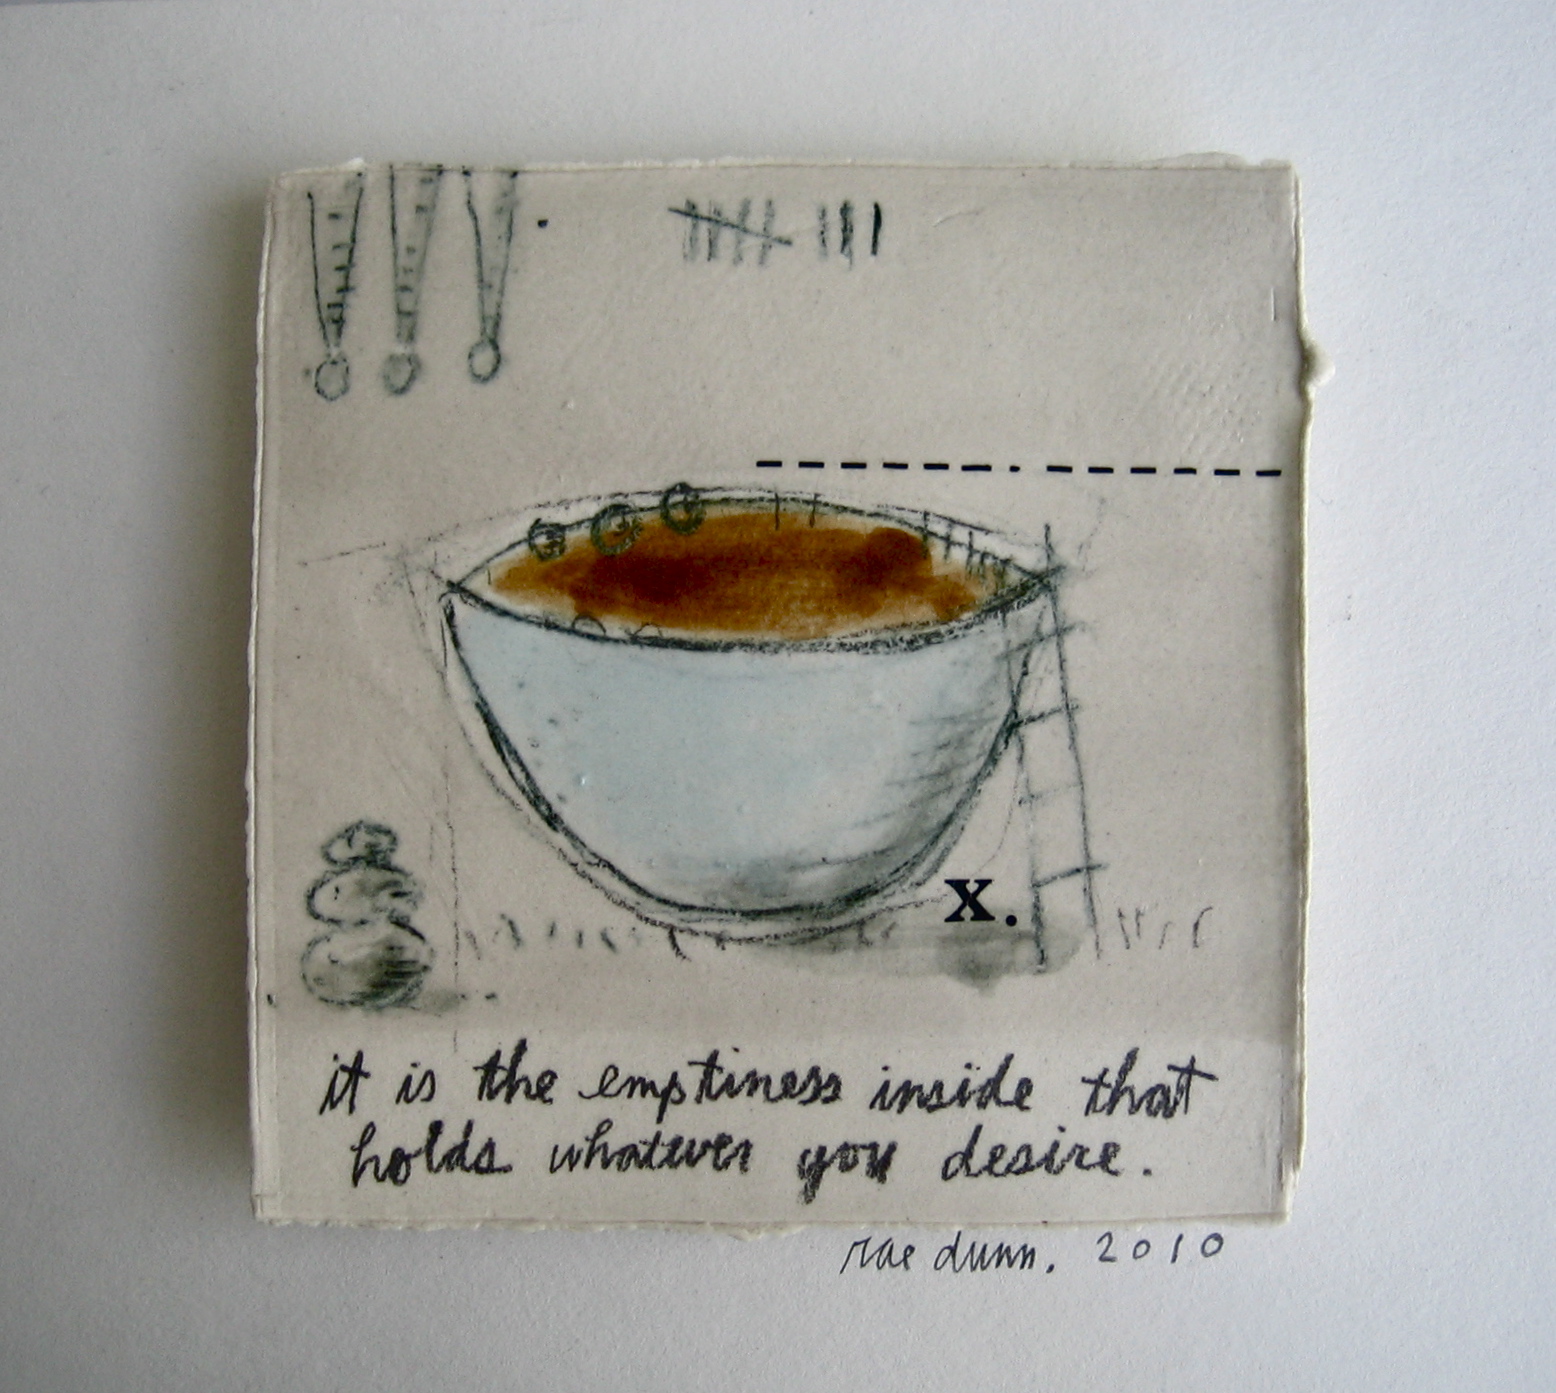 x.
it is the emptiness inside that
holds whatever you desire.
rae dunn. 2010